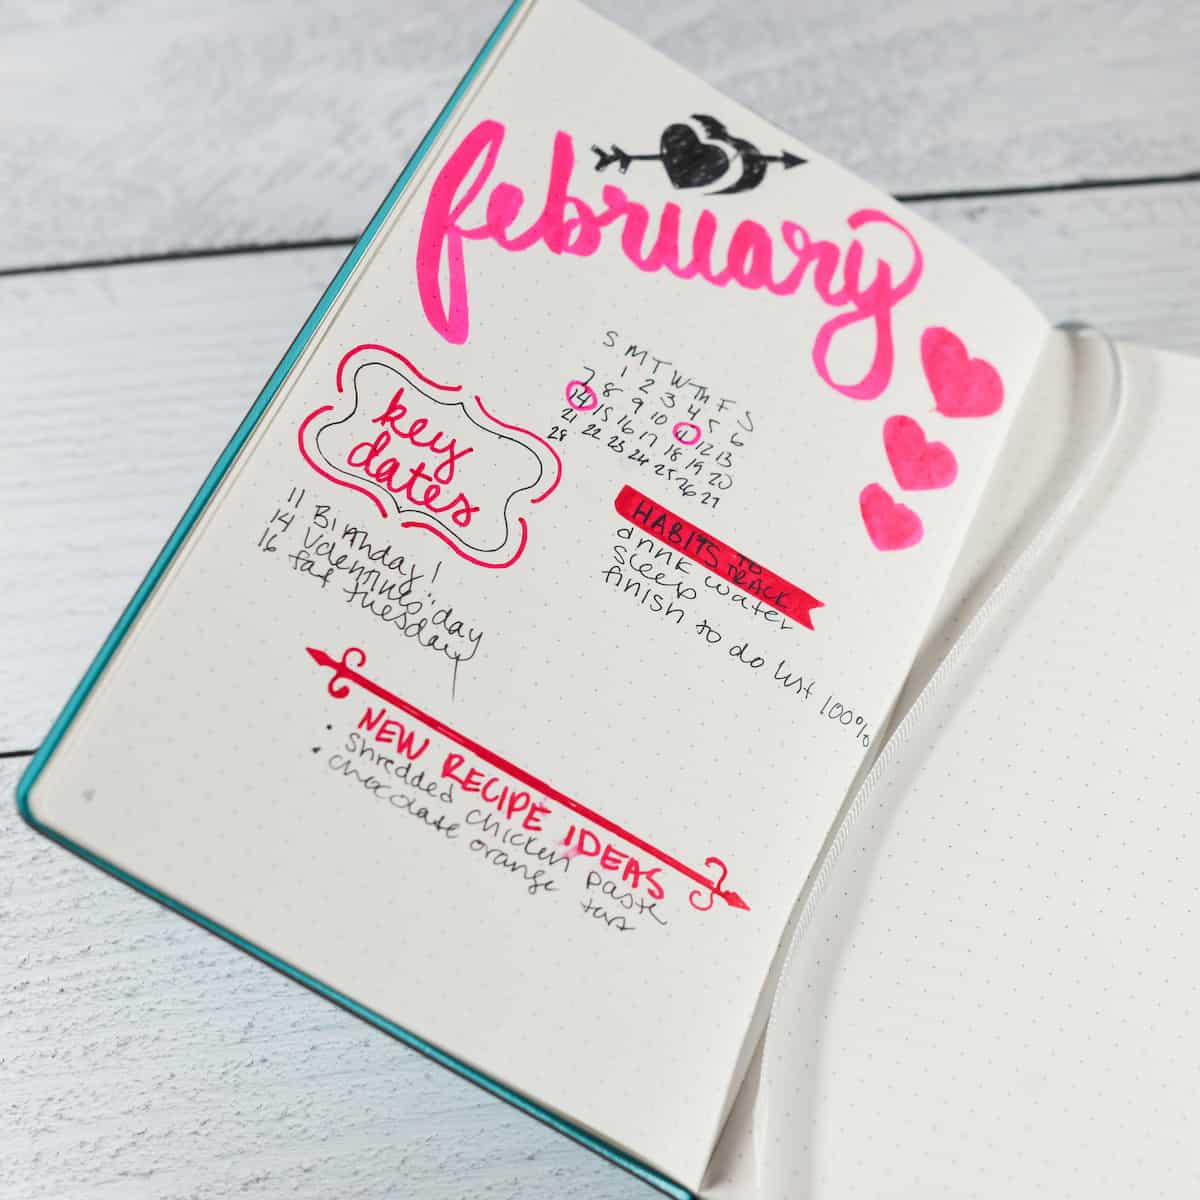 february
S M T W Th F S
1 2 3 4 5 6
7 8 9 10 11 12 13
14 15 16 17 18 19 20
21 22 23 24 25 26 27
28
key
dates
11 Birthday!
14 Valentines day
16 fat tuesday
HABITS TO
TRACK
drink water
sleep
finish to do list 100%
NEW RECIPE IDEAS
• shredded chicken paste
• chocolate orange